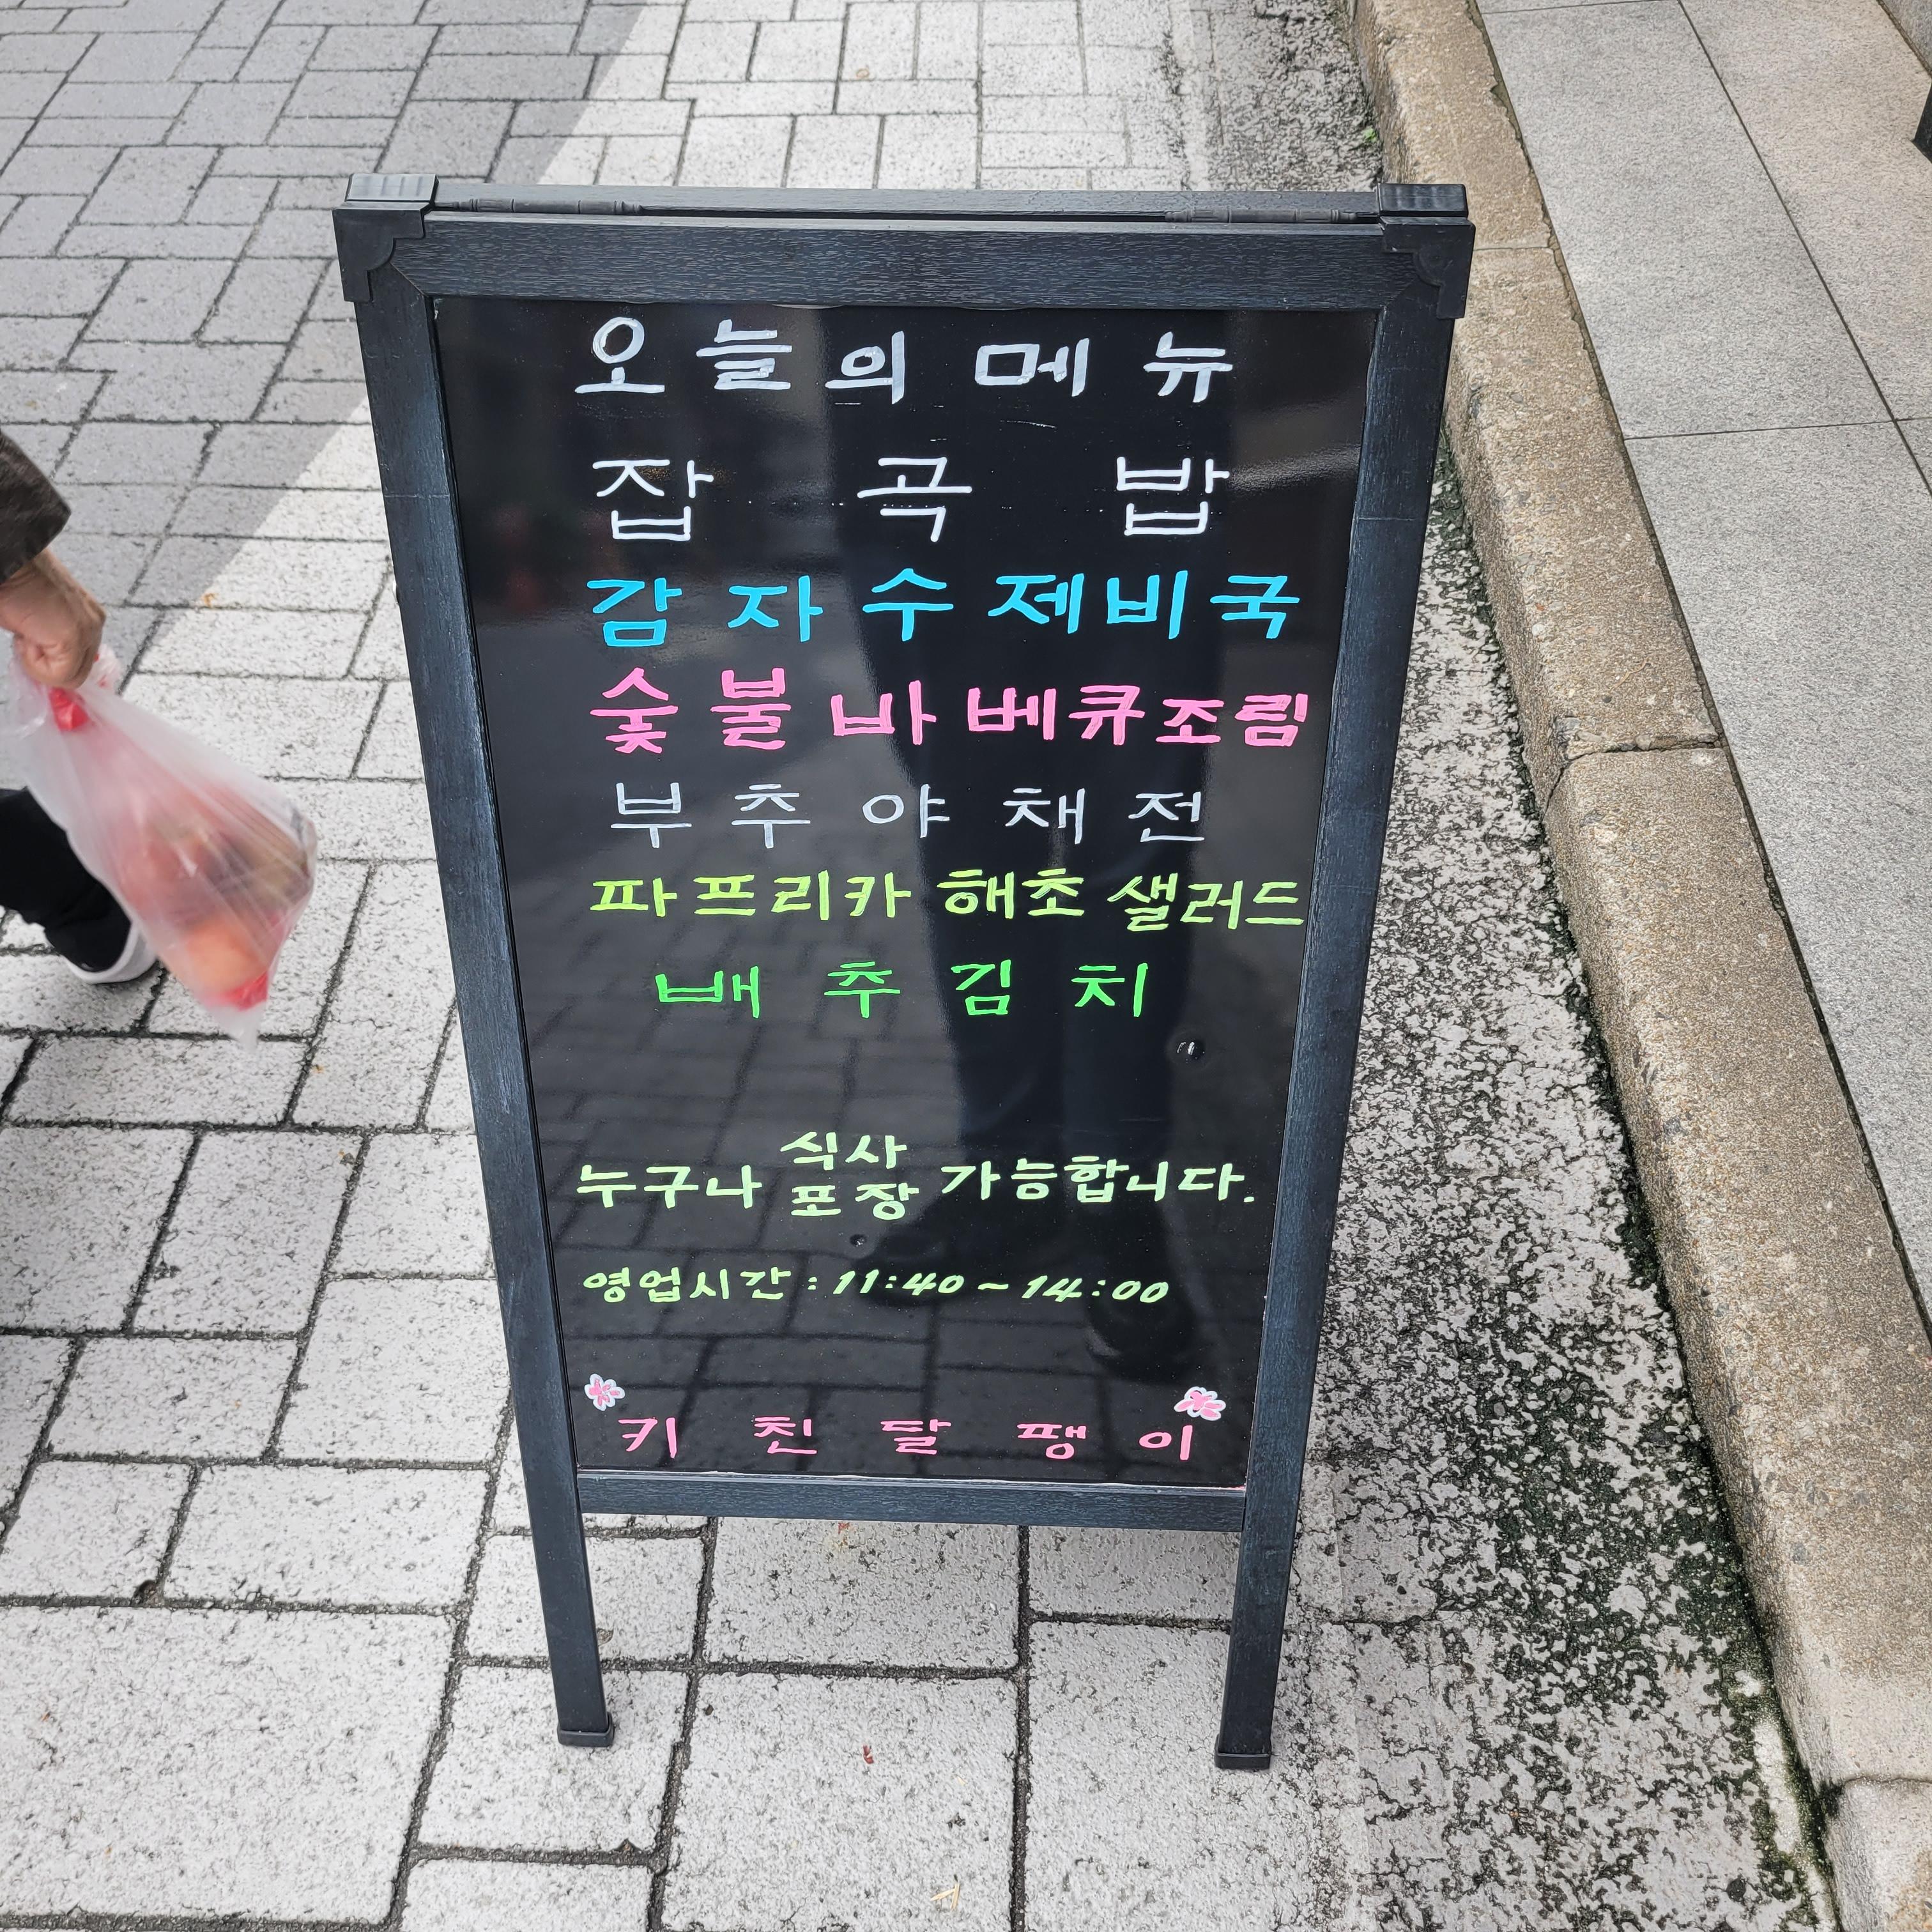 오늘의 메뉴
잡곡밥
감자수제비국
숯불바베큐조림
부추야채전
파프리카 해초 샐러드
배추김치
누구나 식사 포장 가능합니다.
영업시간 : 11:40 ~ 14:00
키친달팽이